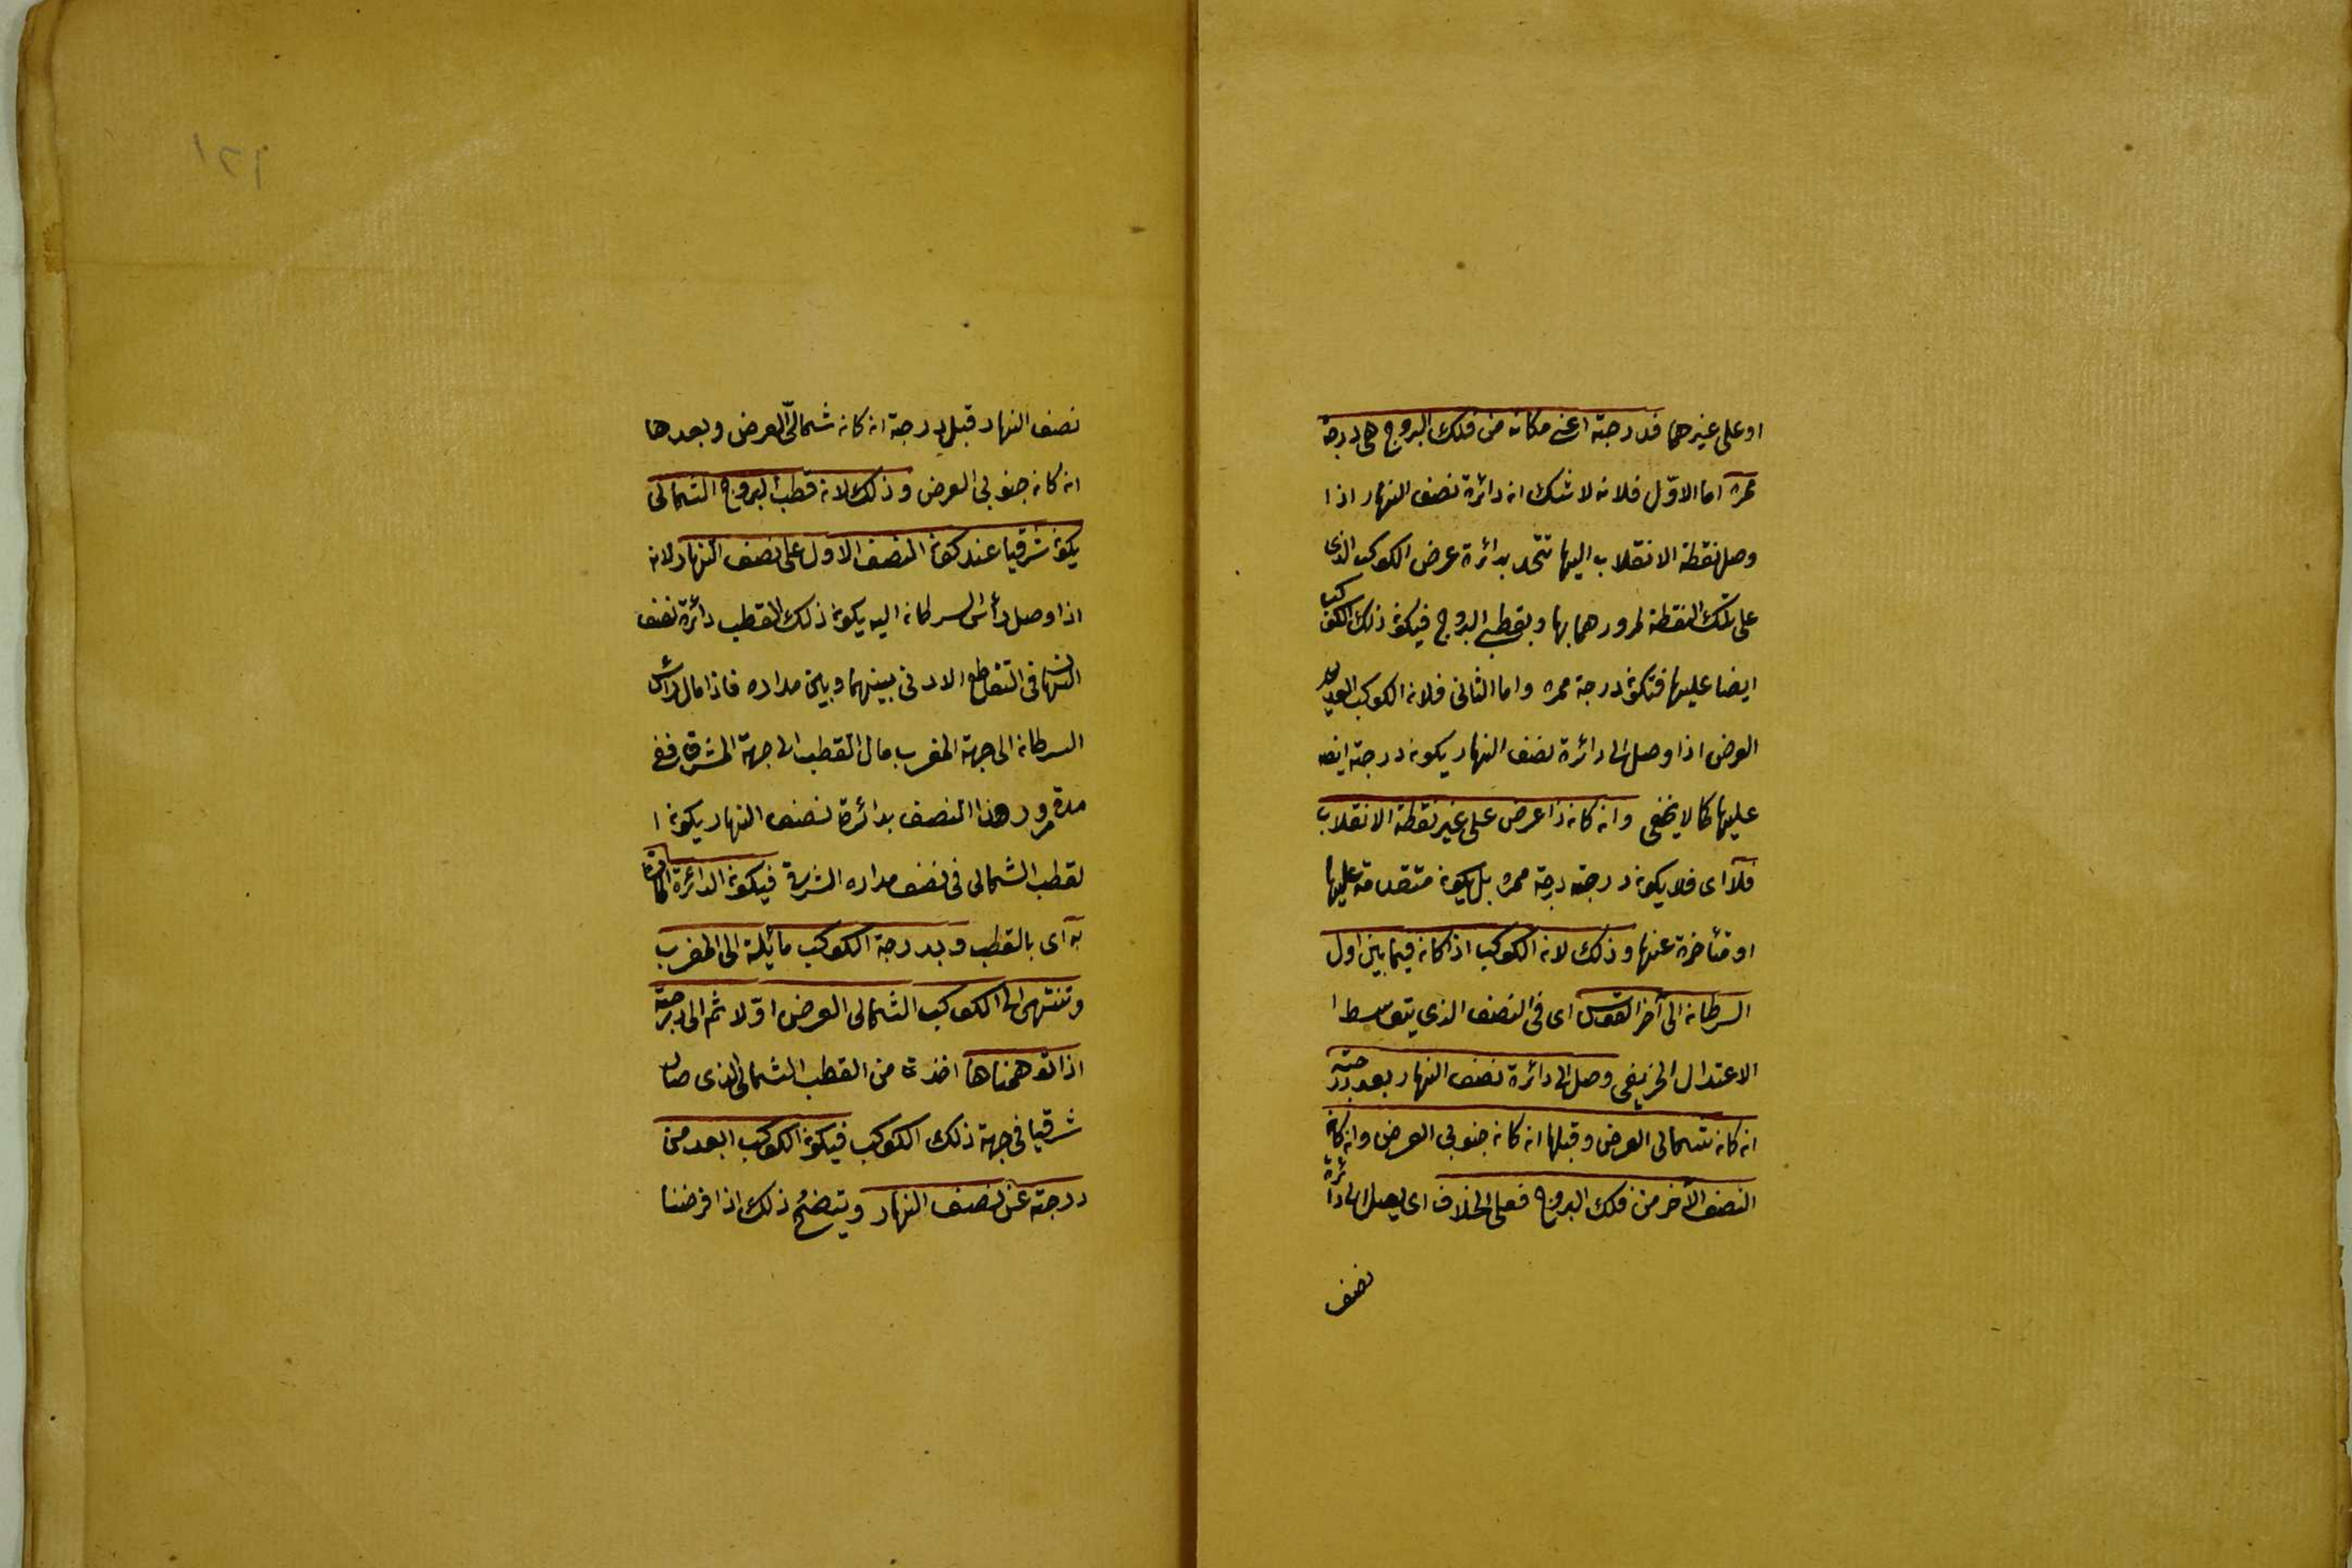 او على غيرهما فدرجته اعنى مكانه من فلك البروج هى درجة
ممره اما الاول فلانه لا شك انه دائرة نصف النهار اذا
وصل نقطة الانقلاب اليها تتحد بدائرة عرض الكوكب الذى
على تلك النقطة لمرورهما بها وبقطبى البروج فيكون ذلك الكوكب
ايضا عليها فتكون درجة ممره واما الثانى فلانه الكوكب العديم
العرض اذا وصل الى دائرة نصف النهار يكون درجته ايضا
عليها كما لا يخفى وانه كانه ذا عرض على غير نقطة الانقلاب
فلا اى فلا يكونه درجته درجة ممره بل يكونه متقدمة عليها
او متأخرة عنها وذلك لانه الكوكب اذا كانه فيما بين اول
السرطانه الى آخر القوس اى فى النصف الذى يتوسط ا
الاعتدال الخريفى وصل الى دائرة نصف النهار بعد درجته
انه كانه شمالى العرض وقبلها انه كانه جنوبى العرض وانه كانه
النصف الآخر من فلك البروج فعلى الخلاف اى يصل الى دائرة
نصف
١٢١
نصف النهار قبل درجة انه كانه شمالى العرض وبعدها
انه كانه جنوبى العرض وذلك لانه قطب البروج الشمالى
يكون شرقيا عند كون النصف الاول على نصف النهار لانه
اذا وصل رأس السرطانه اليه يكون ذلك القطب دائرة نصف
النهار فى التقاطع الادنى بينهما وبين مداره فاذا مال رأس
السرطانه الى جهة المغرب مال القطب الى جهة المشرق ففى
مدة مرور هذا النصف بدائرة نصف النهار يكونه ا
لقطب الشمالى فى نصف مداره الشرقى فيكونه الدائرة المارة
به اى بالقطب وبدرجة الكوكب مائلة الى المغرب
وتنتهى الى الكوكب الشمالى العرض اولا ثم الى درجته
اذا توهمناها اخذت من القطب الشمالى الذى صار
شرقيا فى جهة ذلك الكوكب فيكون الكوكب ابعد من
درجته عن نصف النهار ويتضح ذلك اذا فرضنا